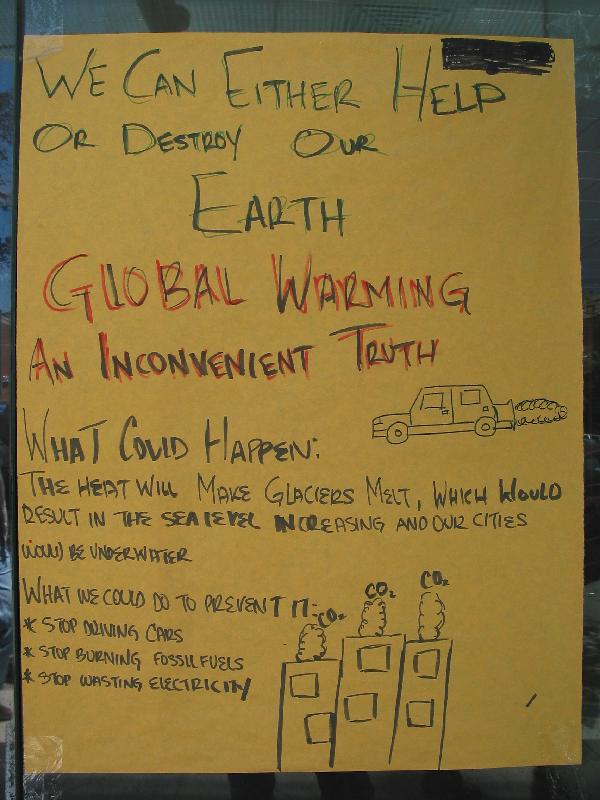 WE CAN EITHER HELP
OR DESTROY OUR
EARTH
GLOBAL WARMING
AN INCONVENIENT TRUTH
WHAT COULD HAPPEN:
THE HEAT WILL MAKE GLACIERS MELT, WHICH WOULD
RESULT IN THE SEA LEVEL INCREASING AND OUR CITIES
WOULD BE UNDERWATER
WHAT WE COULD DO TO PREVENT IT:
* STOP DRIVING CARS
* STOP BURNING FOSSIL FUELS
* STOP WASTING ELECTRICITY
CO₂
CO₂
CO₂